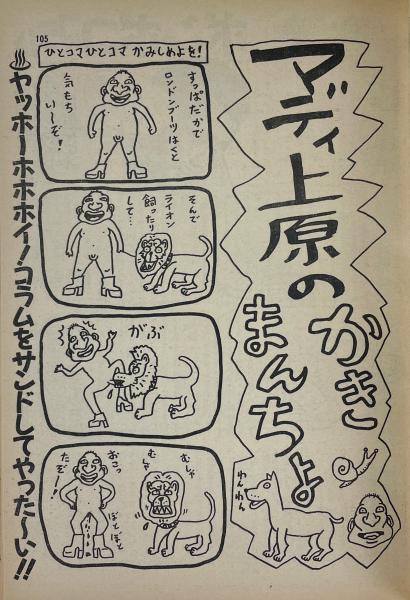 105
ひとコマひとコマ かみしめよを!
マディ上原の
かき
まんちょ
わんわん
すっぱだかで
ロンドンブーツはくと
気もち
い〜ぞ!
そんで
ライオン
飼ったり
して…
がぶ
むしゃ
むしゃ
おこっ
たぞー!
ぼとぼと
♨ヤッホーホホホイ!コラムをサンドしてやった〜い!!